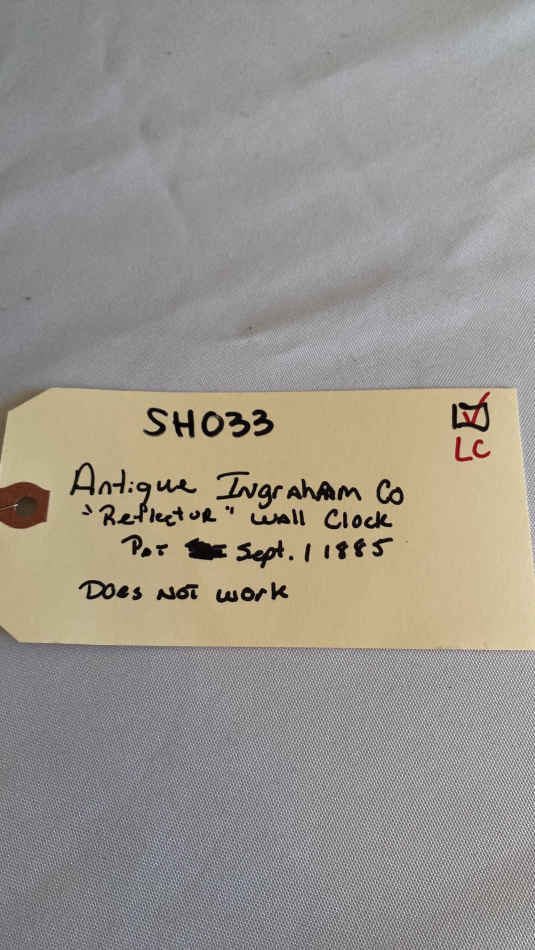 SH033
LC
Antique Ingraham Co
"Reflector" Wall Clock
Pat Sept. 1 1885
Does Not work